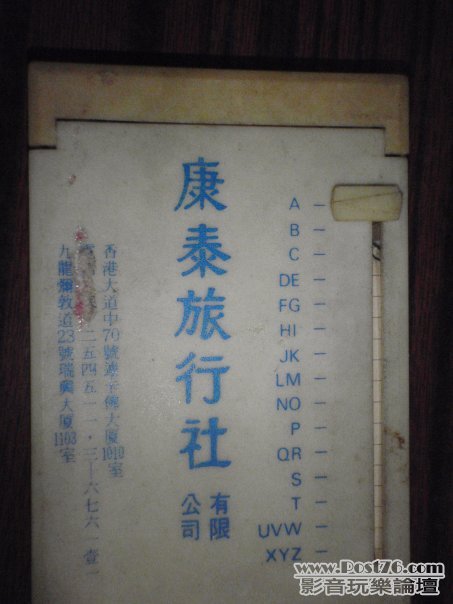 康泰旅行社
有限
公司
香港大道中70號 大厦1010室
二五四五一一・三—六七六一壹
九龍彌敦道23號瑞興大厦1103室
A
B
C
DE
FG
HI
JK
LM
NO
P
QR
S
T
UVW
XYZ
www.Post76.com
影音玩樂論壇